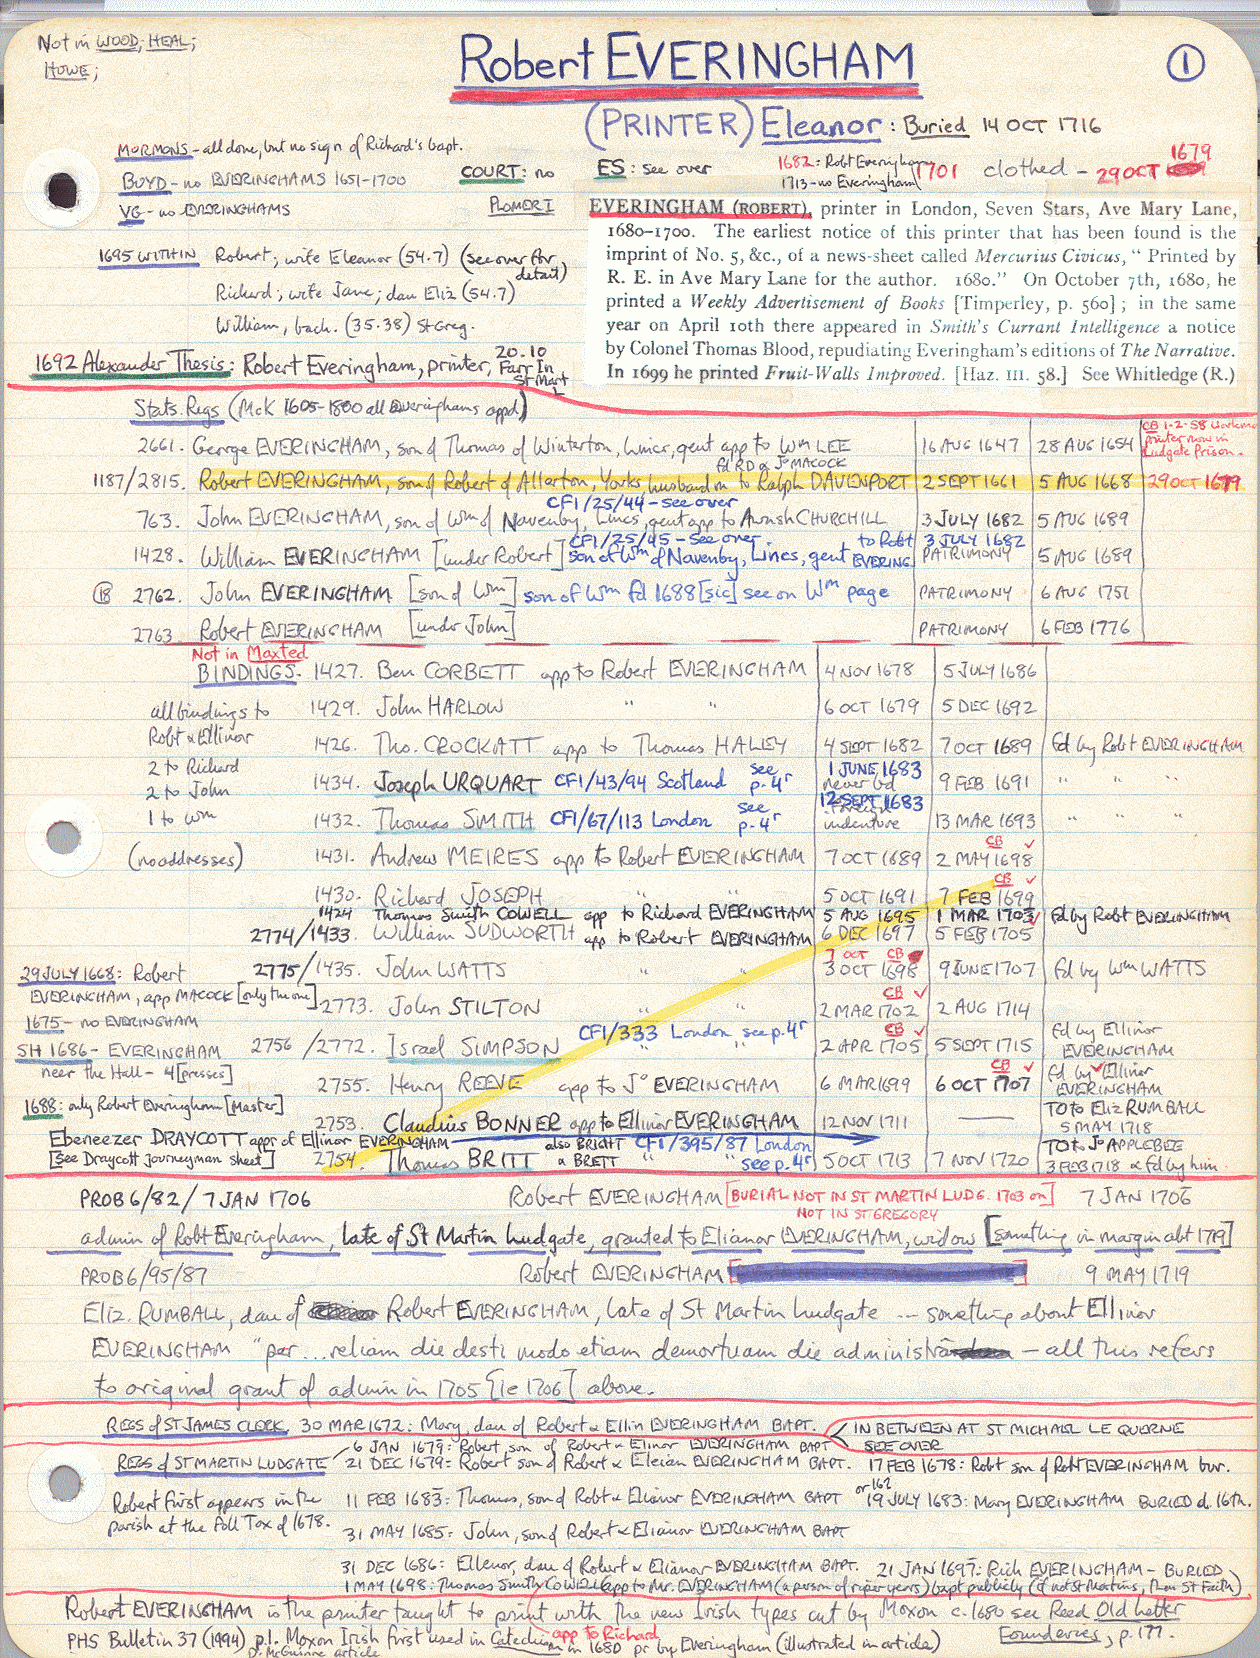 Not in WOOD; HEAL;
HOWE;
Robert EVERINGHAM
1
(PRINTER) Eleanor: Buried 14 OCT 1716
MORMONS - all done, but no sign of Richard's bapt.
BOYD - no EVERINGHAMS 1651-1700
VG - no EVERINGHAMS
COURT: no
ES: see over
1682: Robt Everingham
1713 - no Everingham
1701 clothed - 29 OCT 1679
PLOMER I
EVERINGHAM (ROBERT), printer in London, Seven Stars, Ave Mary Lane,
1680-1700. The earliest notice of this printer that has been found is the
imprint of No. 5, &c., of a news-sheet called Mercurius Civicus, "Printed by
R. E. in Ave Mary Lane for the author. 1680." On October 7th, 1680, he
printed a Weekly Advertisement of Books [Timperley, p. 560]; in the same
year on April 10th there appeared in Smith's Currant Intelligence a notice
by Colonel Thomas Blood, repudiating Everingham's editions of The Narrative.
In 1699 he printed Fruit-Walls Improved. [Haz. III. 58.] See Whitledge (R.)
1695 WITHIN Robert; wife Eleanor (54.7) (see over for detail)
Richard; wife Jane; dau Eliz (54.7)
William, bach. (35.38) St Greg.
1692 Alexander Thesis: Robert Everingham, printer, 20.10 Farr In St Mart L
Stats. Regs (McK 1605-1800 all Everinghams appd)
2661. George EVERINGHAM, son of Thomas of Winterton, Lincs, gent app to Wm LEE 16 AUG 1647 28 AUG 1654 CB 1-2-58 workman printer now in Ludgate Prison.
fd RD & Jo MACOCK
1187/2815. Robert EVERINGHAM, son of Robert of Allerton, Yorks husbandm to Ralph DAVENPORT 2 SEPT 1661 5 AUG 1668 29 OCT 1679
CF1/25/44 - see over
763. John EVERINGHAM, son of Wm of Navenby, Lincs, gent app to Awnsh CHURCHILL 3 JULY 1682 5 AUG 1689
CF1/25/45 - see over. to Robt 3 JULY 1682
1428. William EVERINGHAM [under Robert] son of Wm of Navenby, Lincs, gent EVERING PATRIMONY 5 AUG 1689
18 2762. John EVERINGHAM [son of Wm] son of Wm fd 1688 [sic] see on Wm page PATRIMONY 6 AUG 1751
2763 Robert EVERINGHAM [under John] PATRIMONY 6 FEB 1776
Not in Maxted
BINDINGS. 1427. Ben CORBETT app to Robert EVERINGHAM 4 NOV 1678 5 JULY 1686
all bindings to
Robt & Ellinor
2 to Richard
2 to John
1 to Wm
(no addresses)
1429. John HARLOW " " 6 OCT 1679 5 DEC 1692
1426. Tho. CROCKATT app to Thomas HALEY 4 SEPT 1682 7 OCT 1689 fd by Robt EVERINGHAM
1434. Joseph URQUART CF1/43/94 Scotland see p. 4r 1 JUNE 1683 never bd 9 FEB 1691 " " "
1432. Thomas SMITH CF1/67/113 London see p. 4r 12 SEPT 1683 foreign indenture 13 MAR 1693 " " "
1431. Andrew MEIRES app to Robert EVERINGHAM 7 OCT 1689 CB ✓ 2 MAY 1698
1430. Richard JOSEPH " " 5 OCT 1691 CB ✓ 7 FEB 1699
1424 Thomas Smith COWELL app to Richard EVERINGHAM 5 AUG 1695 1 MAR 1703 ✓ fd by Robt EVERINGHAM
2774/1433. William SUDWORTH app to Robert EVERINGHAM 6 DEC 1697 5 FEB 1705
2775/1435. John WATTS " " 7 OCT CB 3 OCT 1698 9 JUNE 1707 fd by Wm WATTS
2773. John STILTON " " CB ✓ 2 MAR 1702 2 AUG 1714
2756/2772. Israel SIMPSON CF1/333 London see p. 4r " " CB ✓ 2 APR 1705 5 SEPT 1715 fd by Ellinor EVERINGHAM
2755. Henry REEVE app to Jo EVERINGHAM 6 MAR 1699 CB ✓ 6 OCT 1707 fd by Ellinor EVERINGHAM
2753. Claudius BONNER app to Ellinor EVERINGHAM 12 NOV 1711 — TO to Eliz RUMBALL 5 MAY 1718
2754. Thomas BRITT also BRIGHT & BRETT " " CF1/395/87 London see p. 4r 5 OCT 1713 7 NOV 1720 TO to Jo APPLEBEE 3 FEB 1718 & fd by him.
29 JULY 1668: Robert
EVERINGHAM, app MACOCK [only the one]
1675 - no EVERINGHAM
SH 1686 - EVERINGHAM
near the Hall - 4 [presses]
1688: only Robert Everingham [Master]
Ebeneezer DRAYCOTT appr of Ellinor EVERINGHAM
[see Draycott journeyman sheet]
PROB 6/82/7 JAN 1706 Robert EVERINGHAM [BURIAL NOT IN ST MARTIN LUDG. 1703 on] 7 JAN 1706
NOT IN ST GREGORY
admin of Robt Everingham, late of St Martin Ludgate, granted to Elianor EVERINGHAM, widow [something in margin abt 1719]
PROB 6/95/87 Robert EVERINGHAM 9 MAY 1719
Eliz. RUMBALL, dau of Robert EVERINGHAM, late of St Martin Ludgate ... something about Ellinor
EVERINGHAM "per ... reliam die desti modo etiam demortuam die administra - all this refers
to original grant of admin in 1705 [ie 1706] above.
REGS of ST JAMES CLERK. 30 MAR 1672: Mary, dau of Robert & Ellin EVERINGHAM BAPT. IN BETWEEN AT ST MICHAEL LE QUERNE
SEE OVER
6 JAN 1679: Robert, son of Robert & Elinor EVERINGHAM BAPT
REGS of ST MARTIN LUDGATE 21 DEC 1679: Robert son of Robert & Eleian EVERINGHAM BAPT. 17 FEB 1678: Robt son of Robt EVERINGHAM bur.
Robert first appears in the
parish at the Poll Tax of 1678.
11 FEB 1683: Thomas, son of Robt & Elianor EVERINGHAM BAPT or 162 19 JULY 1683: Mary EVERINGHAM BURIED d. 16th.
31 MAY 1685: John, son of Robert & Elianor EVERINGHAM BAPT
31 DEC 1686: Ellenor, dau of Robert & Elianor EVERINGHAM BAPT. 21 JAN 1697: Rich EVERINGHAM - BURIED
1 MAY 1698: Thomas Smith COWELL (app to Mr. EVERINGHAM (a person of riper years) bapt publicly (if not St Martins, then St Faith)
Robert EVERINGHAM is the printer taught to print with the new Irish types cut by Moxon c. 1680 see Reed Old Letter
Founderies, p. 177.
app to Richard
PHS Bulletin 37 (1994) p.1. Moxon Irish first used in Catechism in 1680 pr by Everingham (illustrated in article)
D. McGuinne article